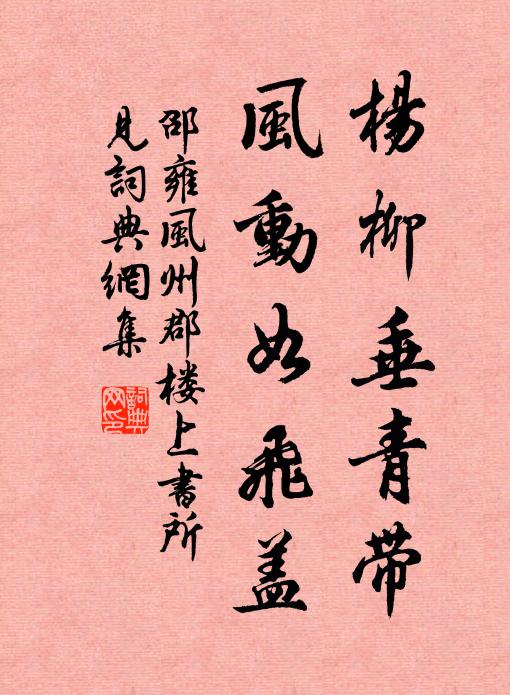 楊柳垂青帶
風動如飛盖
邵雍風州郡楼上書所
見詞典網集
詞典
网印